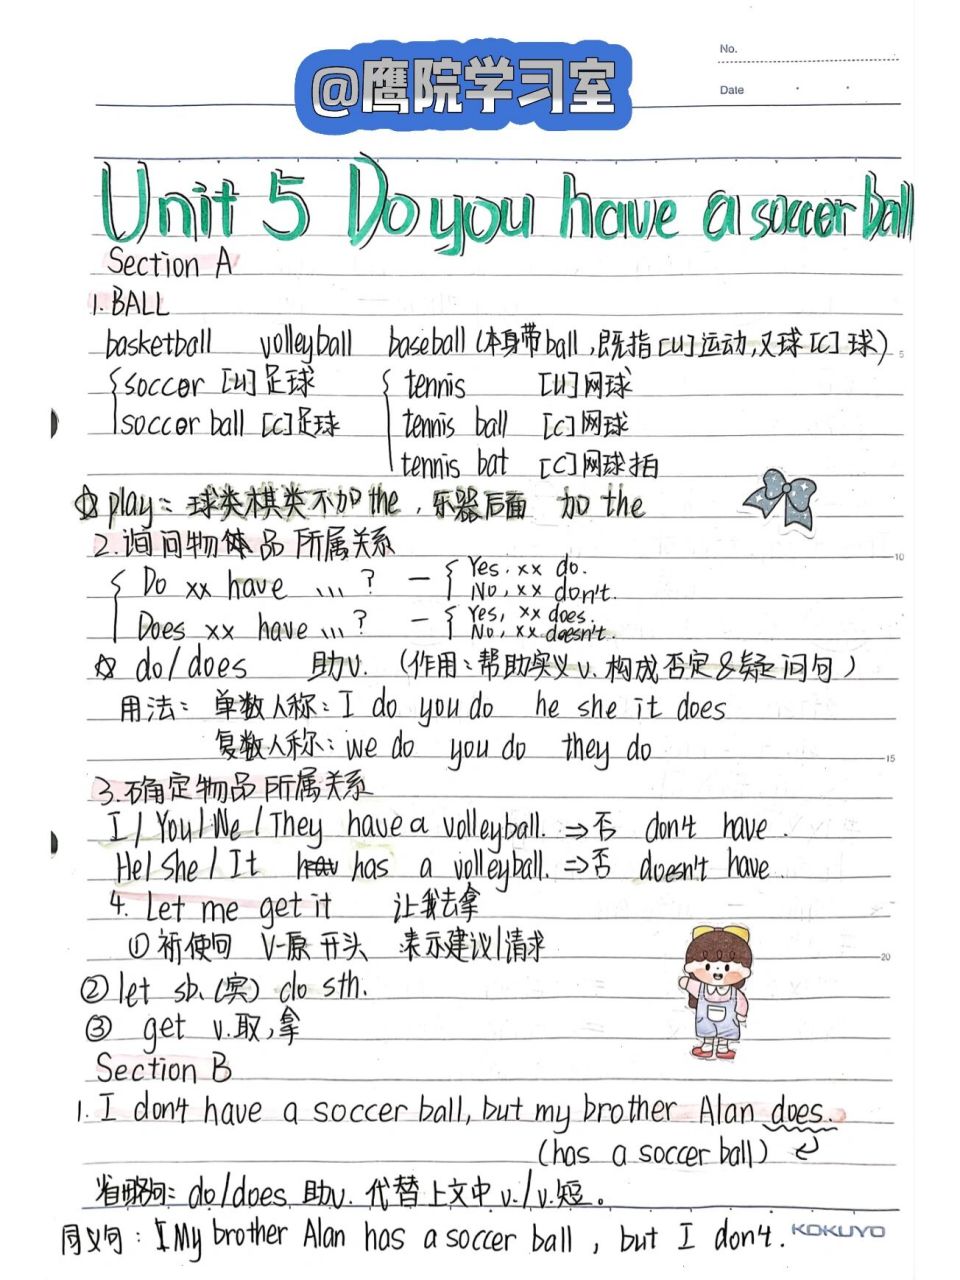 No.
@鹰院学习室
Date
Unit 5 Do you have a soccer ball
Section A
1. BALL
basketball volleyball baseball (本身带ball,既指[U]运动,又球[C]球)
5
soccer [U]足球 tennis [U]网球
soccer ball [C]足球 tennis ball [C]网球
tennis bat [C]网球拍
☆ play: 球类棋类不加the,乐器后面 加the
10
2.询问物体品所属关系
Do xx have ...? — Yes, xx do.
No, xx don't.
Does xx have ...? — Yes, xx does.
No, xx doesn't.
☆ do/does 助v. (作用:帮助实义v.构成否定&疑问句)
用法: 单数人称: I do you do he she it does
复数人称: we do you do they do
15
3.确定物品所属关系
I / You / We / They have a volleyball. ⇒否 don't have.
He / She / It has a volleyball. ⇒否 doesn't have
4. Let me get it 让我去拿
① 祈使句 V-原 开头 表示建议/请求
20
② let sb.(宾) do sth.
③ get v.取,拿
Section B
1. I don't have a soccer ball, but my brother Alan does.
(has a soccer ball)
省略句: do/does 助v. 代替上文中v./v.短。
同义句: My brother Alan has a soccer ball, but I don't.
KOKUYO